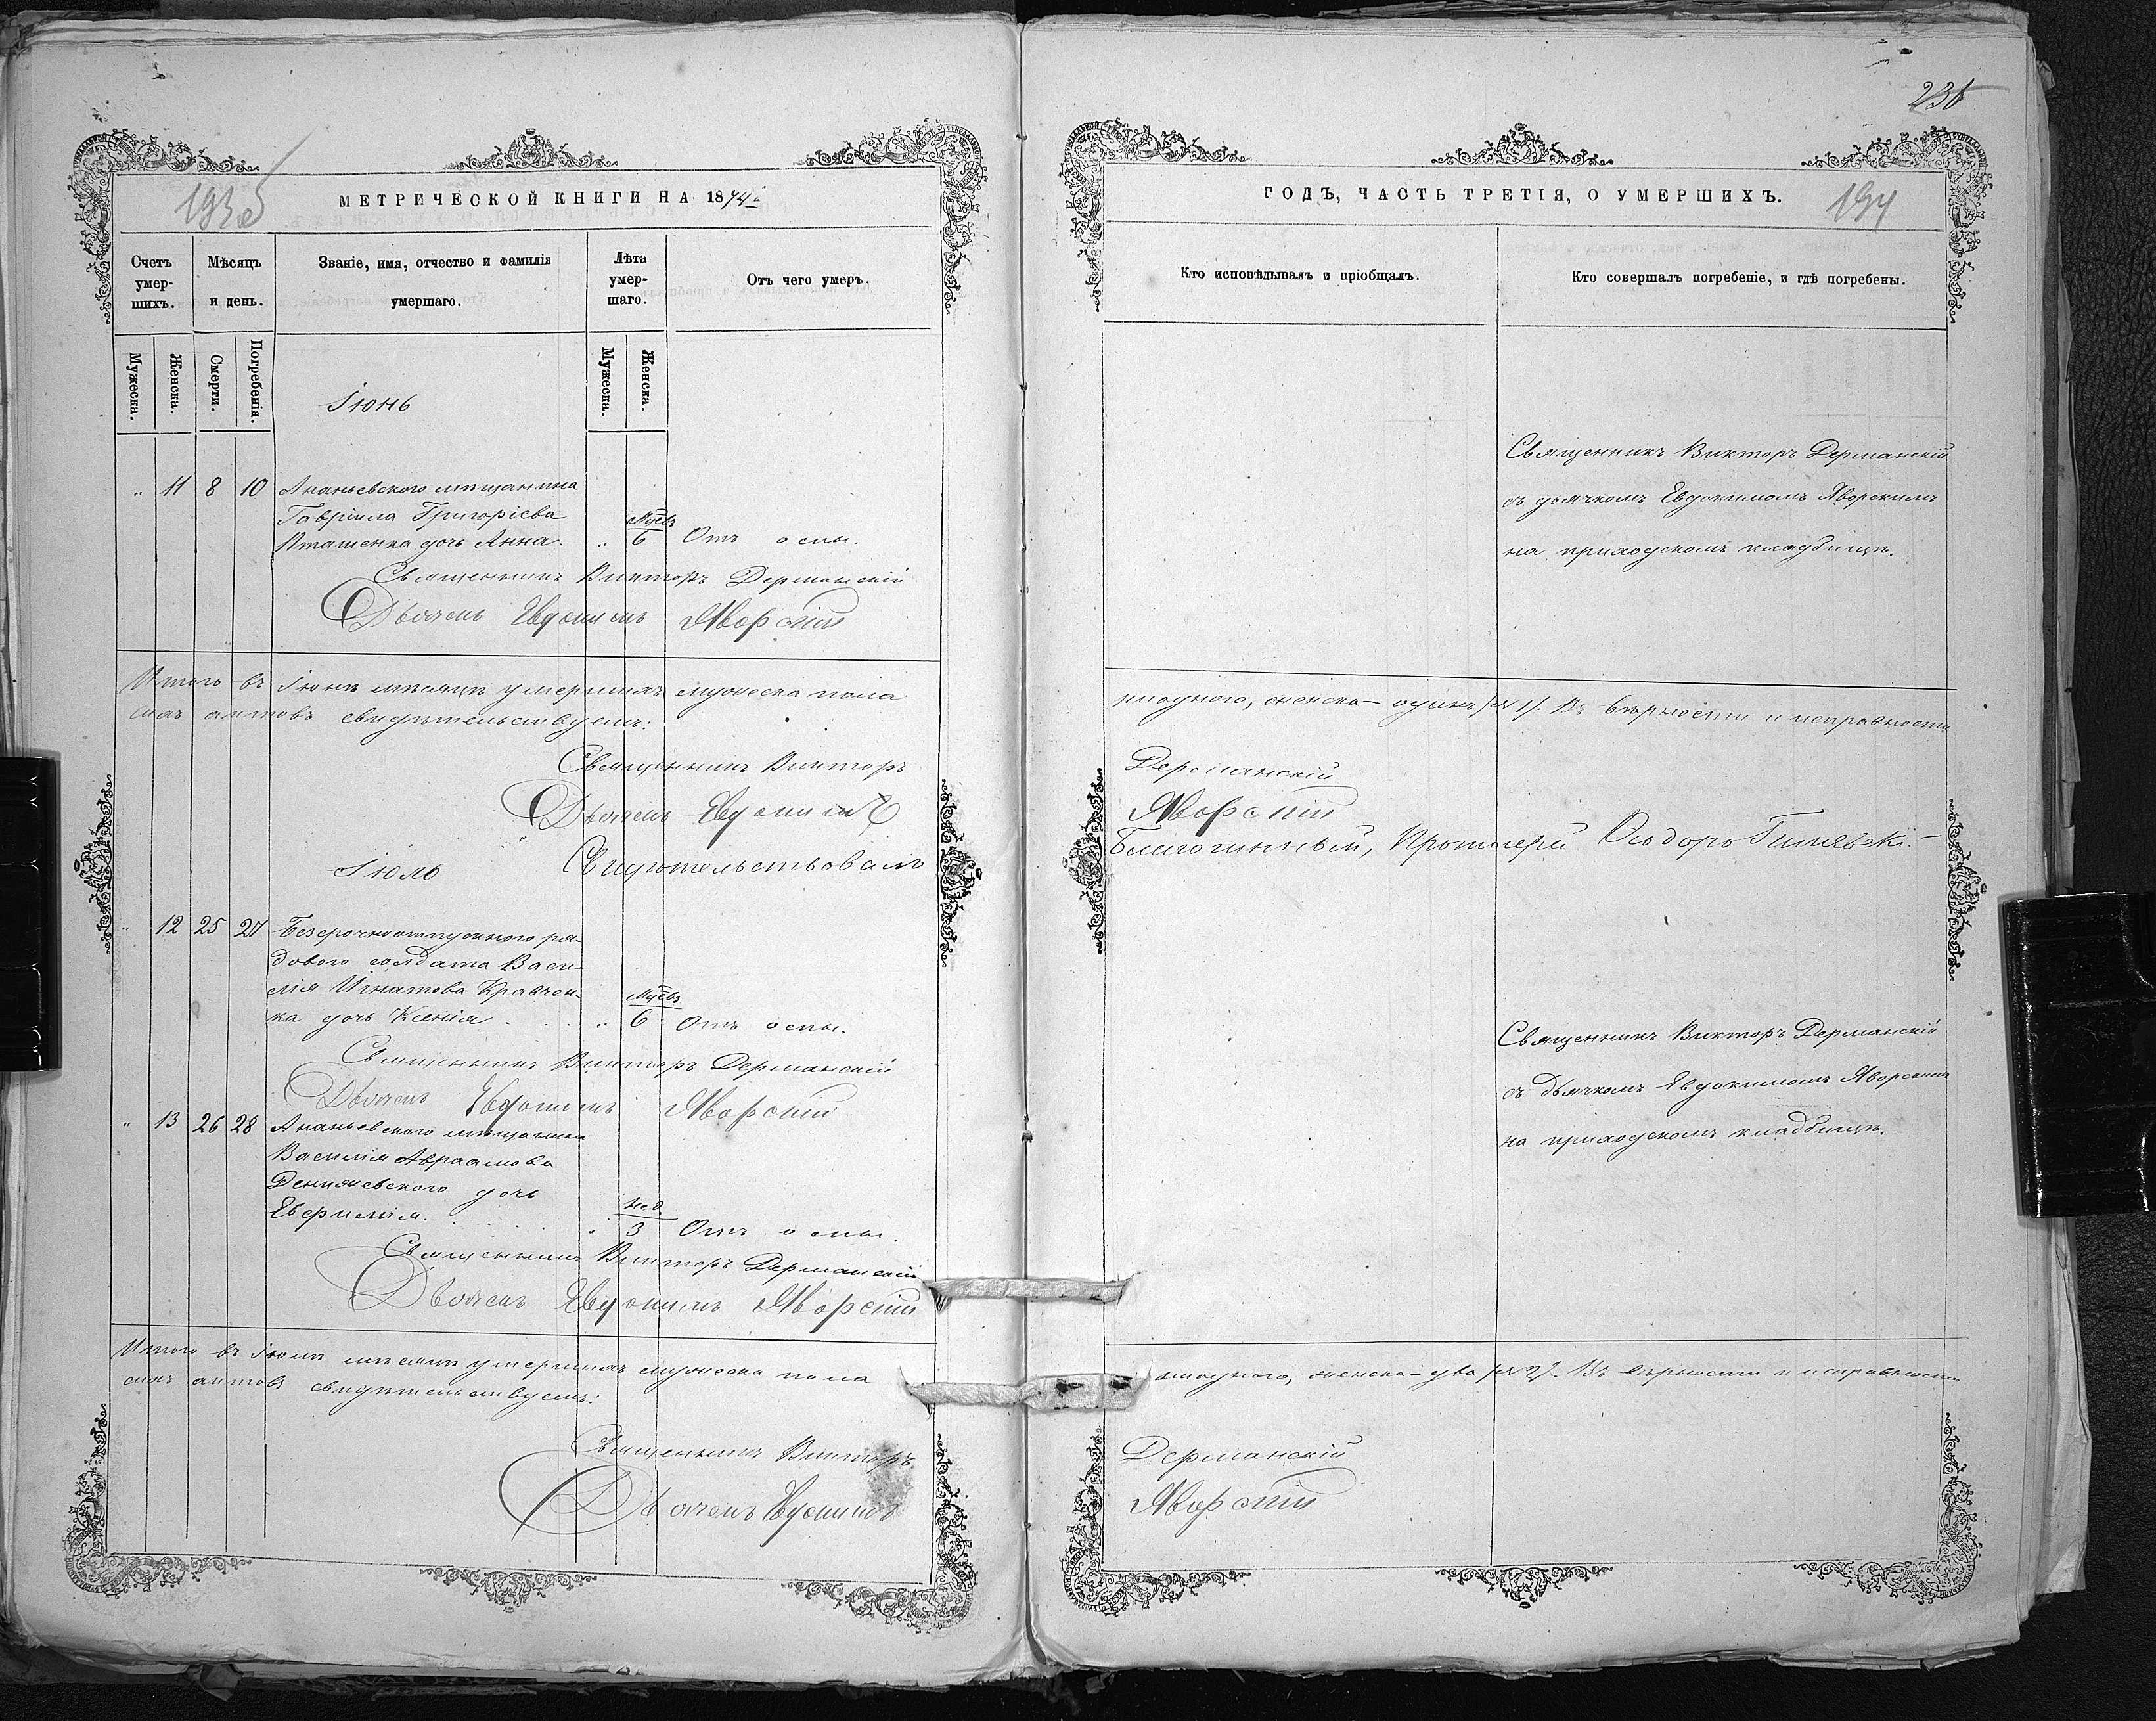 193 об
МЕТРИЧЕСКОЙ КНИГИ НА 1874
Счетъ умершихъ.
Мѣсяцъ и день.
Званіе, имя, отчество и фамилія умершаго.
Лѣта умершаго.
Отъ чего умеръ.
Мужеска.
Женска.
Смерти.
Погребенія.
Мужеска.
Женска.
Іюнь
" 11 8 10 Ананьевского мѣщанина
Гавріила Григоріева
Пташенка дочь Анна. " Мцевъ 6 Отъ оспы.
Священникъ Викторъ Дерманскій
Дьячекъ Евдокимъ Яворскій
Итого въ Іюнѣ мѣсяцѣ умершихъ мужеска пола
сихъ актовъ свидѣтельствуемъ:
Священникъ Викторъ
Дьячекъ Евдокимъ
Свидѣтельствовалъ
Іюль
" 12 25 27 Безсрочноотпускного ря-
дового солдата Васи-
лія Игнатова Кравчен-
ка дочь Ксенія . . . " Мцевъ 6 Отъ оспы.
Священникъ Викторъ Дерманскій
Дьячекъ Евдокимъ Яворскій
" 13 26 28 Ананьевского мѣщанина
Василія Авраамова
дочь
" Нед. 3 Отъ оспы.
Священникъ Викторъ Дерманскій
Дьячекъ Евдокимъ Яворскій
Итого въ Іюлѣ мѣсяцѣ умершихъ мужеска пола
сихъ актовъ свидѣтельствуемъ:
Священникъ Викторъ
Дьячекъ Евдокимъ
ГОДЪ, ЧАСТЬ ТРЕТІЯ, О УМЕРШИХЪ.
194
Кто исповѣдывалъ и пріобщалъ.
Кто совершалъ погребеніе, и гдѣ погребены.
Священникъ Викторъ Дерманскій
съ дьячкомъ Евдокимомъ Яворскимъ
на приходскомъ кладбищѣ.
ниодного, женска – одинъ /№ 1/. Въ вѣрности и исправности
Дерманскій
Яворскій
Благочинный, Протоіерей
Священникъ Викторъ Дерманскій
съ дьячкомъ Евдокимомъ Яворскимъ
на приходскомъ кладбищѣ.
ниодного, женска – два /№ 2/. Въ вѣрности и исправности
Дерманскій
Яворскій